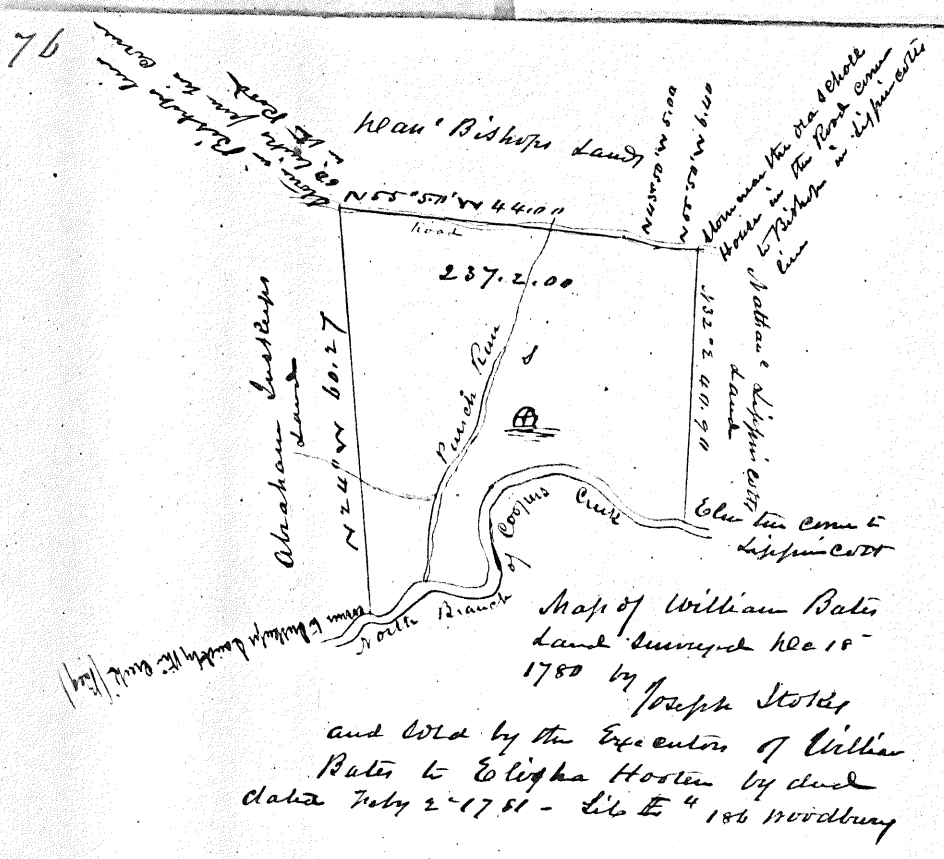 76
Stone in Bishops line
60 links from the corner
in the Road
Hean Bishops Land
N 55° 50' W 44.00
Road
N 43° 50' W 5.00
N 55° 50' W 9.40
Stone near the old scholl
House in the Road corner
to Bishop in Lippincotts
line
237.2.00
Abraham Inskeeps
Land
N 24° W 60.27
Punch Run
N 32° E 40.90
Nathan Lippincotts
Land
North Branch of Coopers Creek
Elm tree corner to
Lippincott
corner to Inskeeps Land by the Creek
Map of William Bates
Land Surveyed Dec 18
1780 by
Joseph Stokes
and sold by the Executors of William
Bates to Elisha Hooten by deed
dated Feby 2 1781 - Lib 186 Woodbury